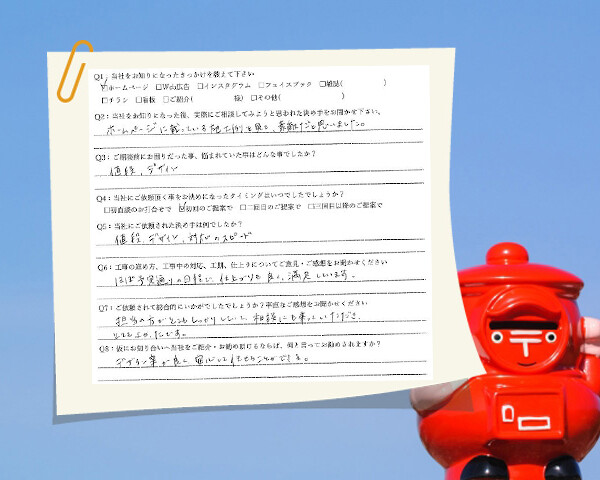 Q1：当社をお知りになったきっかけを教えて下さい
☑ホームページ □Web広告 □インスタグラム □フェイスブック □雑誌( )
□チラシ □看板 □ご紹介( 様) □その他( )
Q2：当社をお知りになった後、実際にご相談してみようと思われた決め手をお聞かせ下さい。
ホームページに載っている施工例を見て、素敵だと思いました。
Q3：ご依頼前にお困りだった事、悩まれていた事はどんな事でしたか？
値段、デザイン
Q4：当社にご依頼頂く事をお決めになったタイミングはいつでしたでしょうか？
□初面談のお打合せで ☑初回のご提案で □二回目のご提案で □三回目以降のご提案で
Q5：当社にご依頼された決め手は何でしたか？
値段、デザイン、対応のスピード
Q6：工事の進め方、工事中の対応、工期、仕上りについてご意見・ご感想をお聞かせください
ほぼ予定通りの日程で、仕上がりも良く、満足しています。
Q7：ご依頼されて総合的にいかがでしたでしょうか？率直なご感想をお聞かせください
担当の方がとてもしっかりしていて、相談にも乗っていただき、
とてもよかったです。
Q8：仮にお知り合いへ当社をご紹介・お勧め頂けるならば、何と言ってお勧めされますか？
デザイン案が良く、安心してまかせることができる。
〒